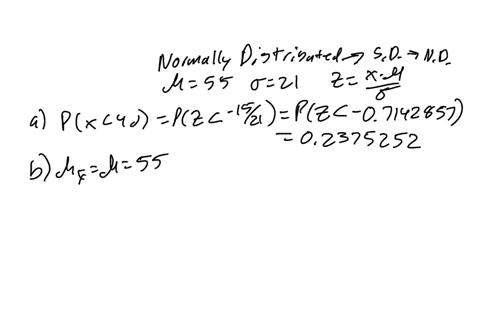 Normally Distributed → S.D. → N.D.
μ = 55 σ = 21 z = x-μ/σ
a) P(x < 40) = P(Z < -15/21) = P(Z < -0.7142857)
= 0.2375252
b) μx̄ = μ = 55